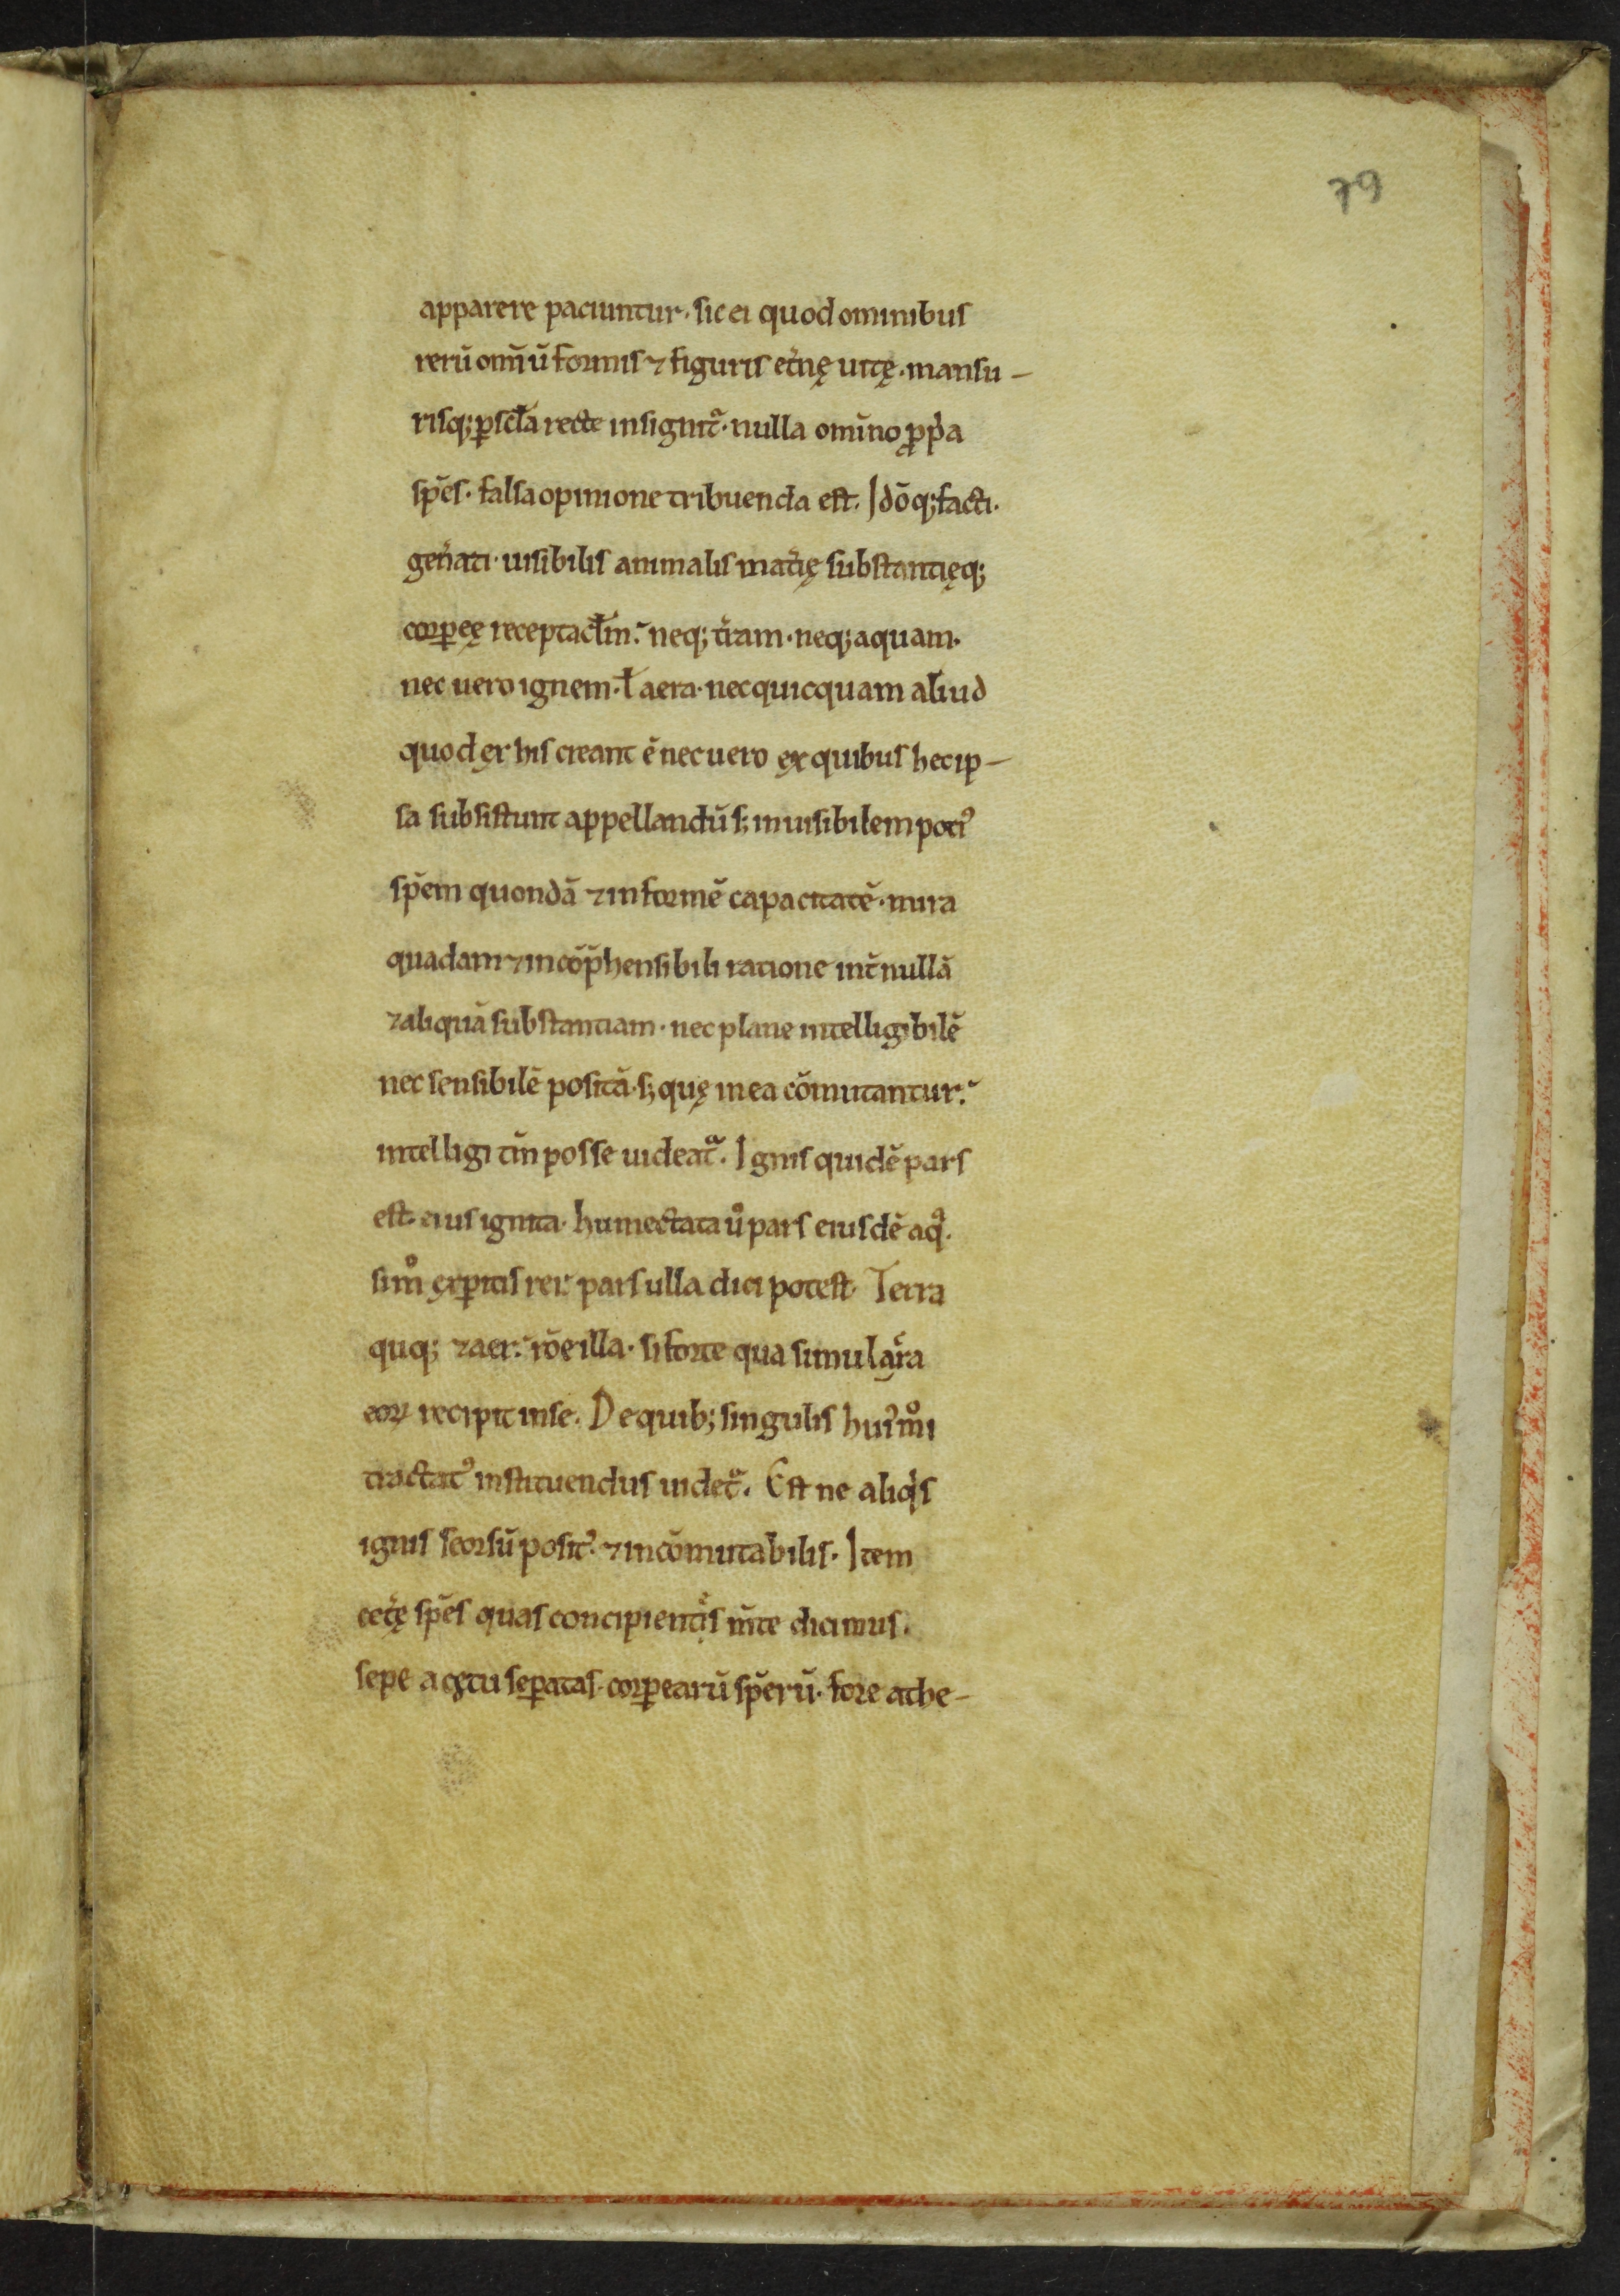 79
apparere paciuntur. sic ei quod ominibus
rerū om̄ıū formis ⁊ figuris et͛nę uitę. mansu-
risq; ꝑ scła recte insignit᷑. nulla omīno ꝓpͥa
sp̄es. falsa opinione tribuenda est. Idōq; facti.
gen͛ati. uisibilis animalis mat͛ię substantięq;
corꝑeę receptacłm. neq; t͛ram. neq; aquam.
nec uero ignem. ł aera. nec quicquam aliud
quod ęx his creant ē nec uero ęx quibus hec ip-
sa subsistunt appellandū s; inuisibilem potiꝰ
sp̄em quondā ⁊ informē capacitatē. mira
quadam ⁊ incōp̄hensibili ratione int̄ nullā
⁊ aliquā substantiam. nec plane intelligibilē
nec sensibilē positā. s; quę in ea cōmutantur.
intelligi tm̄ posse uideat᷑. Ignis quidē pars
est eius ignita. humectata uͦ pars eiusdē aqͣ.
simͦ ęxꝑtis rer. pars ulla dici potest. Terra
quq; ⁊ aer. rōe illa. si forte qua simulac͛ra
eoꝝ recipit in se. De quib; singulis huiꝰmͦi
tractatꝰ instituendus uidet᷑. Est ne aliqͥs
ignis seorsū positꝰ. ⁊ incōmutabilis. Item
cet͛ę sp̄es quas concipientͥs m̄te dicimus.
sepe a cętu seꝑatas. corꝑearū sp̄erū. fore athe-